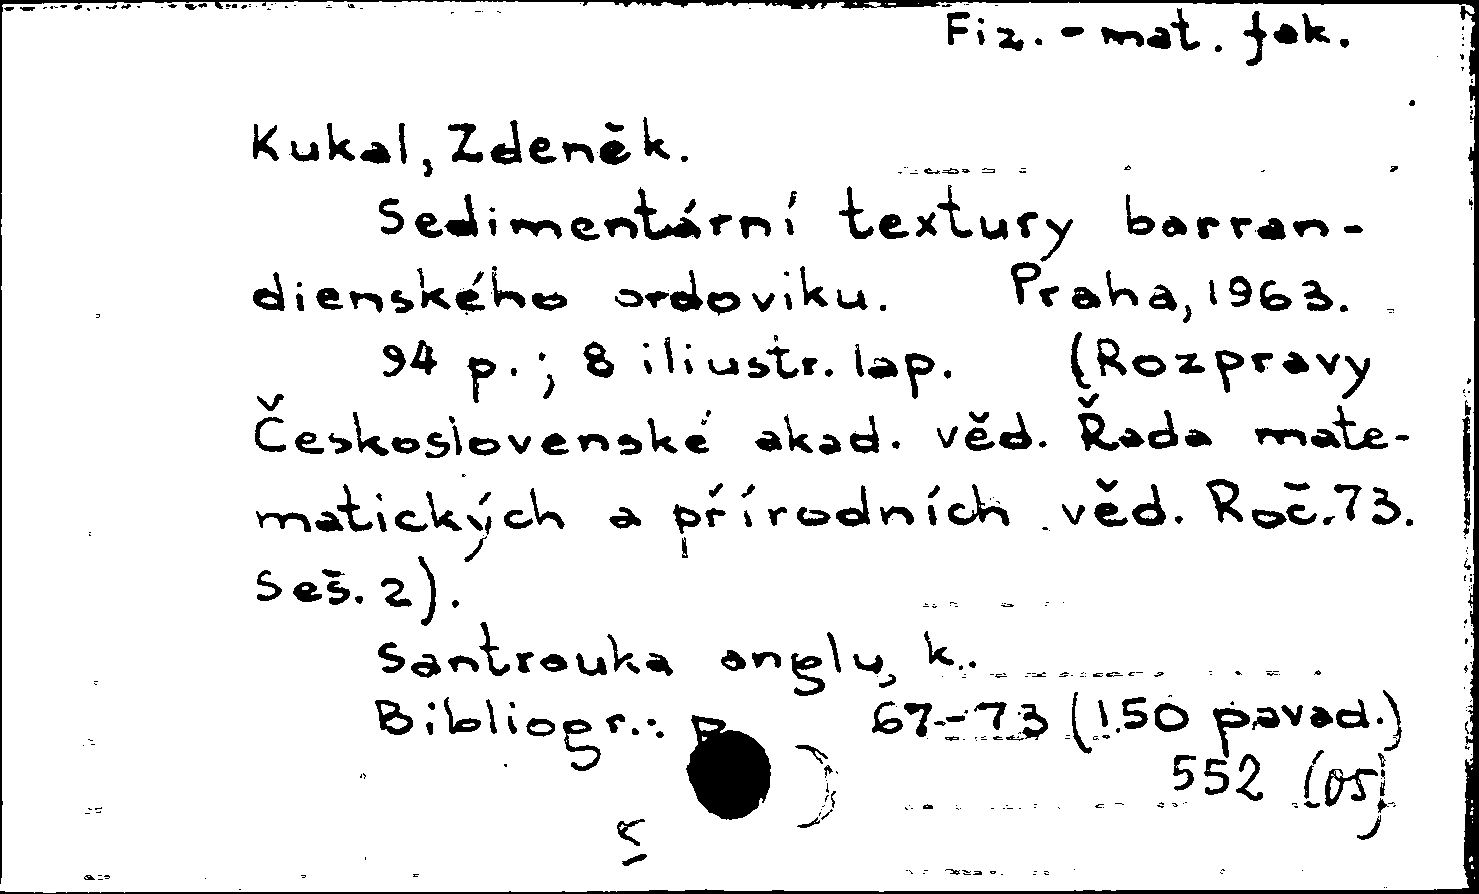 Fiz.-mat. fak.
Kukal, Zdeněk.
Sedimentární textury barran-
dienského ordoviku. Praha, 1963.
94 p.; 8 iliustr. lap. (Rozpravy
Československé akad. věd. Řada mate-
matických a přírodních věd. Roč. 73.
Seš. 2).
Santrauka anglų k.
Bibliogr.: p. 67-73 (150 pavad.)
552 (05)